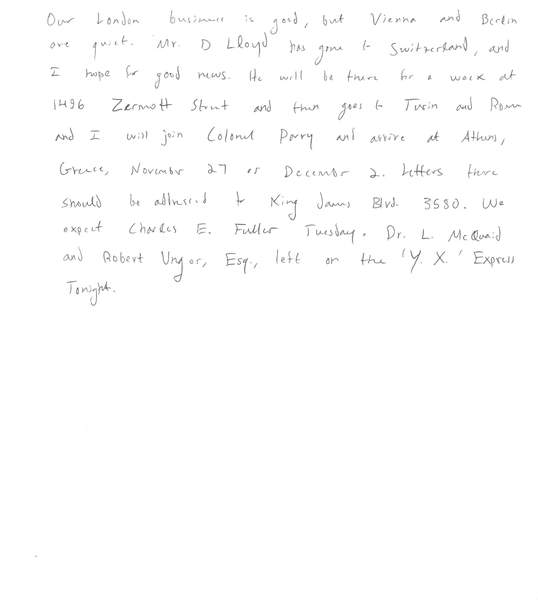 Our London business is good, but Vienna and Berlin
are quiet. Mr. D Lloyd has gone to Switzerland, and
I hope for good news. He will be there for a week at
1496 Zermott Street and then goes to Turin and Rome
and I will join Colonel Parry and arrive at Athens,
Greece, November 27 or December 2. Letters there
should be addressed to King James Blvd. 3580. We
expect Charles E. Fuller Tuesday. Dr. L. McQuaid
and Robert Unger, Esq., left on the 'Y. X.' Express
Tonight.